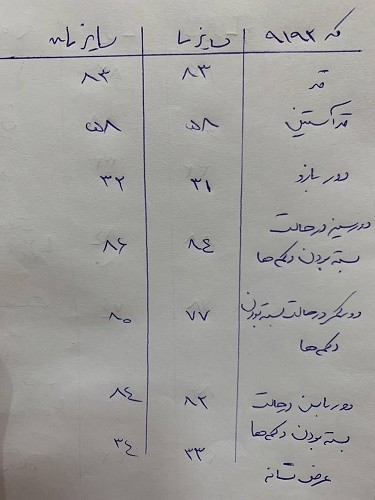 کد ۹۱۹۳ سایز ۱ سایز
قد ۸۳ ۸۳
قد آستین ۵۸ ۵۸
دور بازو ۳۱ ۳۲
دور سینه در حالت
بسته بودن دکمه ها ۸۴ ۸۶
دور کمر در حالت بسته بودن ۷۷ ۸۰
دکمه ها
دور باسن در حالت ۸۲ ۸۴
بسته بودن دکمه ها
عرض شانه ۳۳ ۳۴